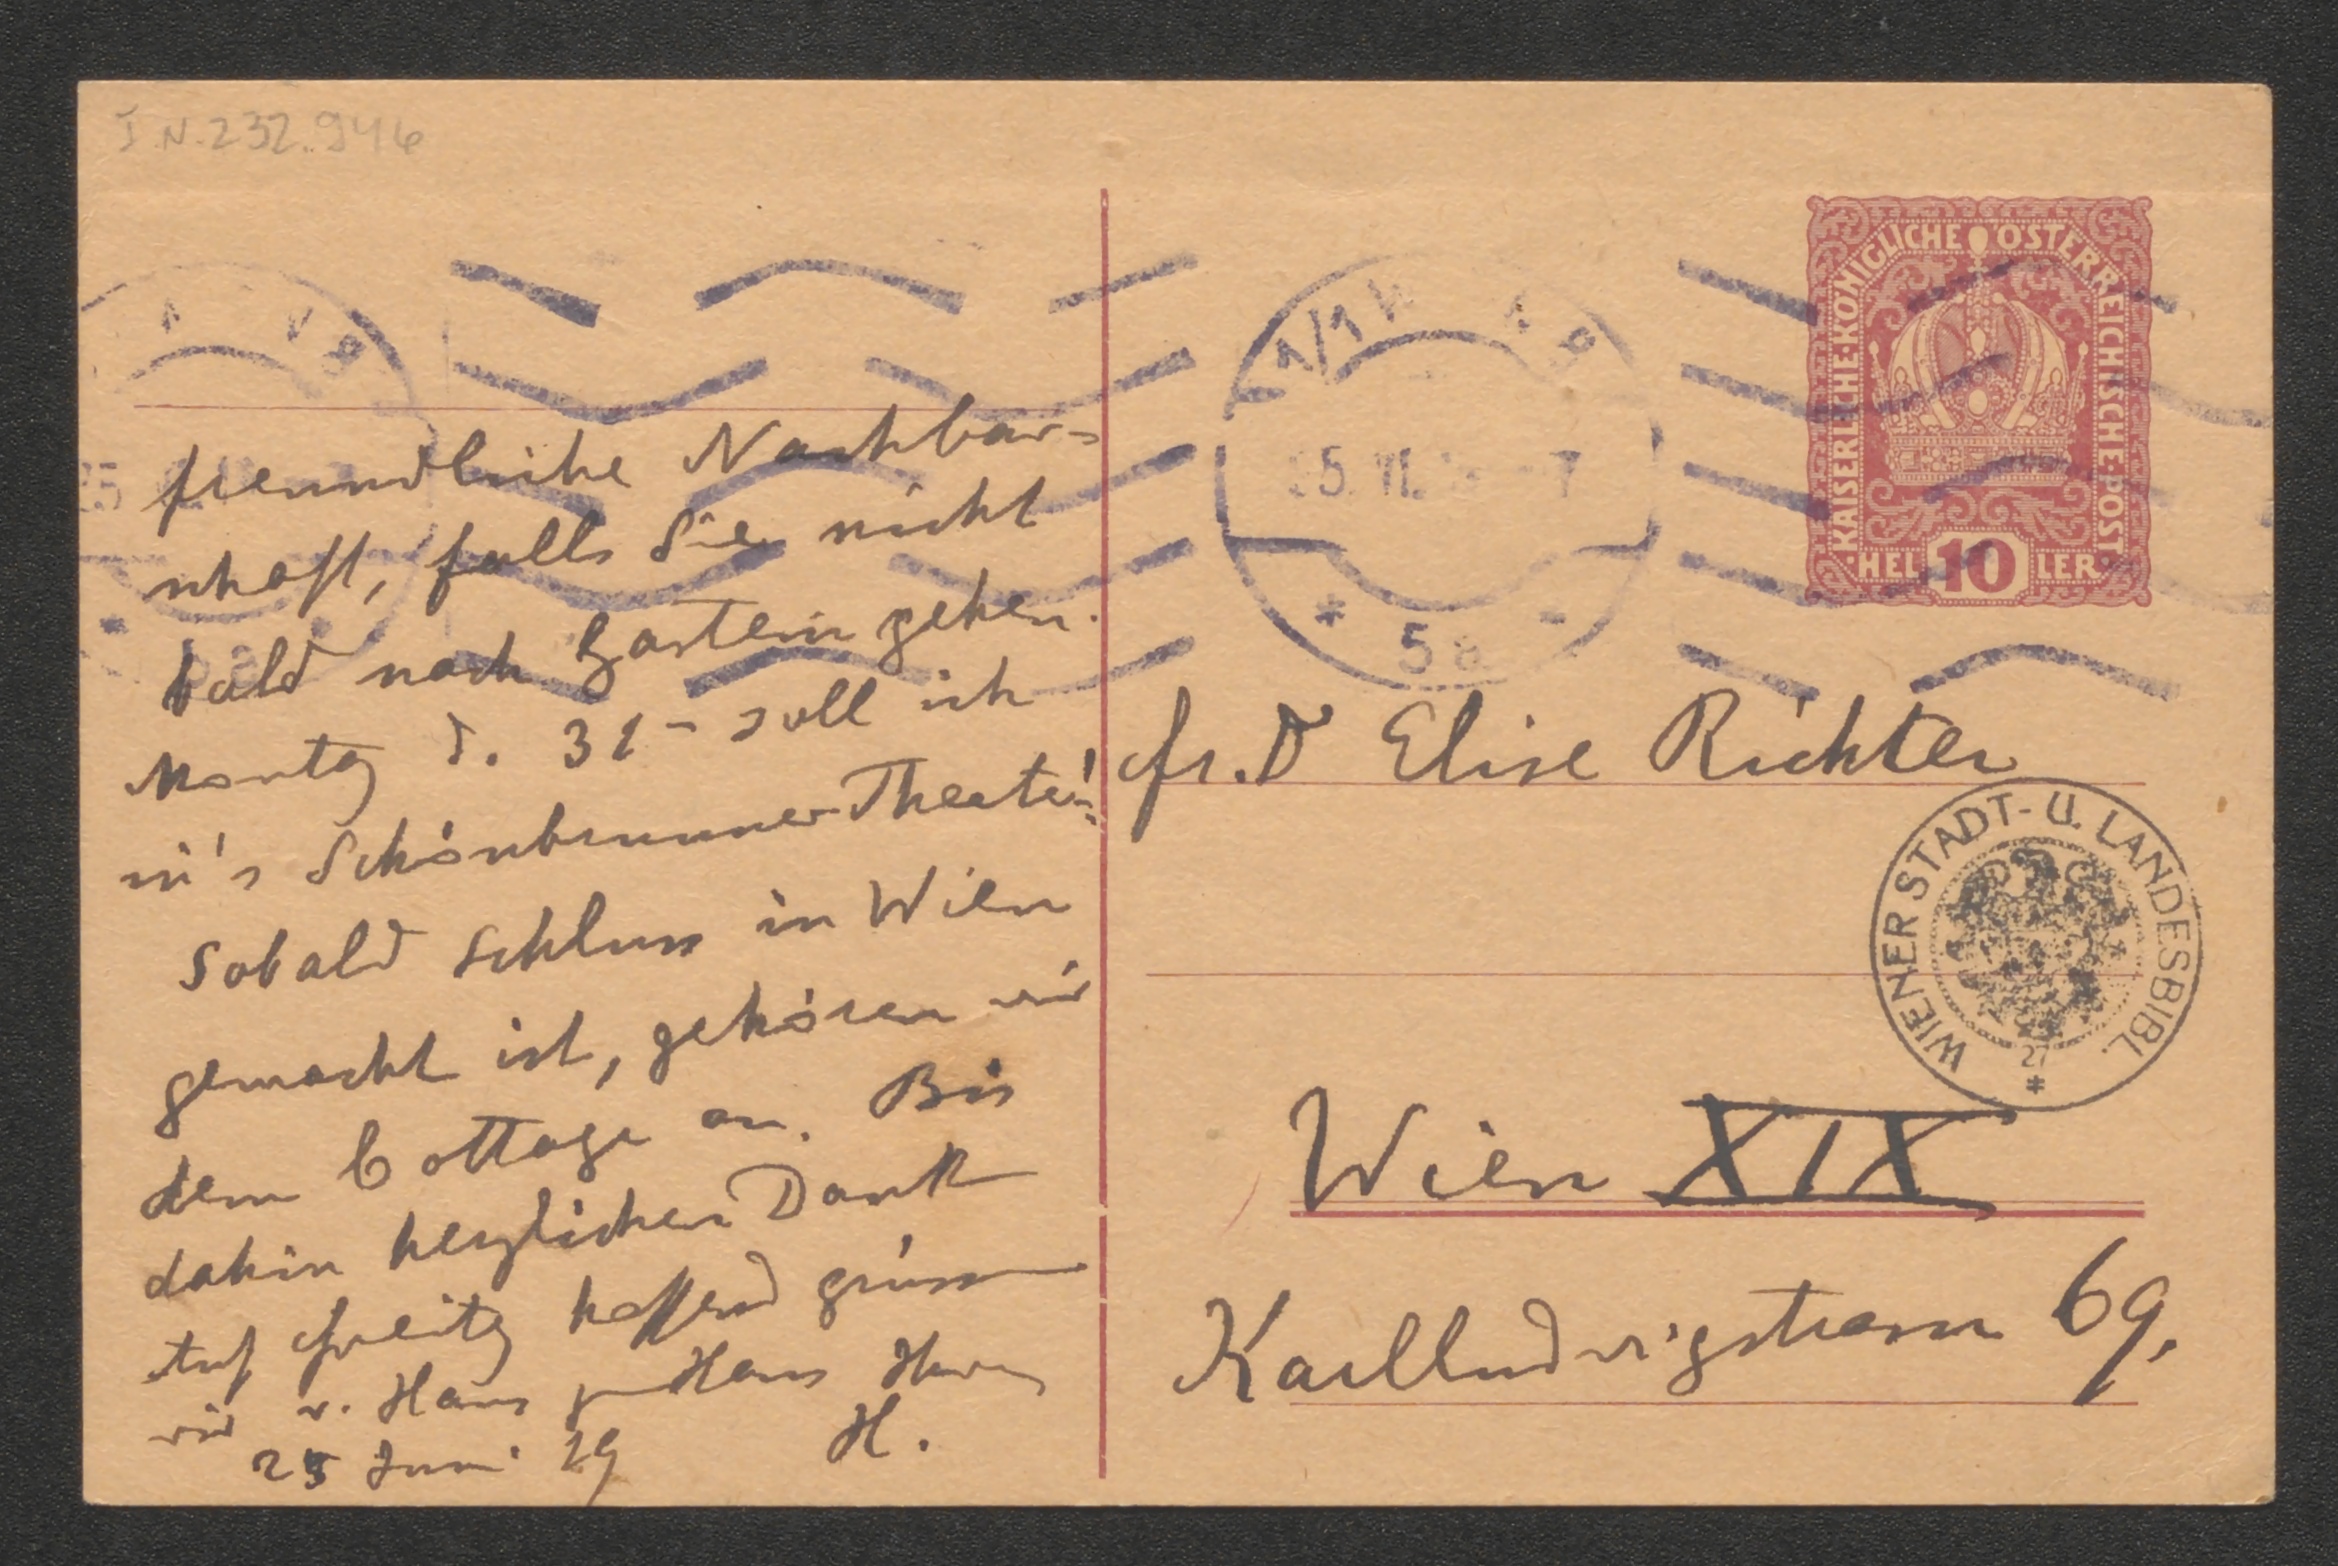 I.N. 232.946
freundliche Nachbar-
schaft, falls Sie nicht
bald nach Gastein gehen.
Montag d. 31 - soll ich
in's Schönbrunner-Theater!
Sobald Schluss in Wien
gemacht ist, gehören wir
dem Cottage an. Bis
dahin herzlichen Dank
Auf Freitg hoffend grüssen
wir v. Haus zu Haus
H.
25 Juni 19
KAISERLICHE KÖNIGLICHE ÖSTERREICHISCHE POST
HEL 10 LER
1/1
5. VI. 7
* 5
Fr. D Elise Richter
WIENER STADT- U. LANDESBIBL.
27
*
Wien XIX
Karlludwigstrasse 69.